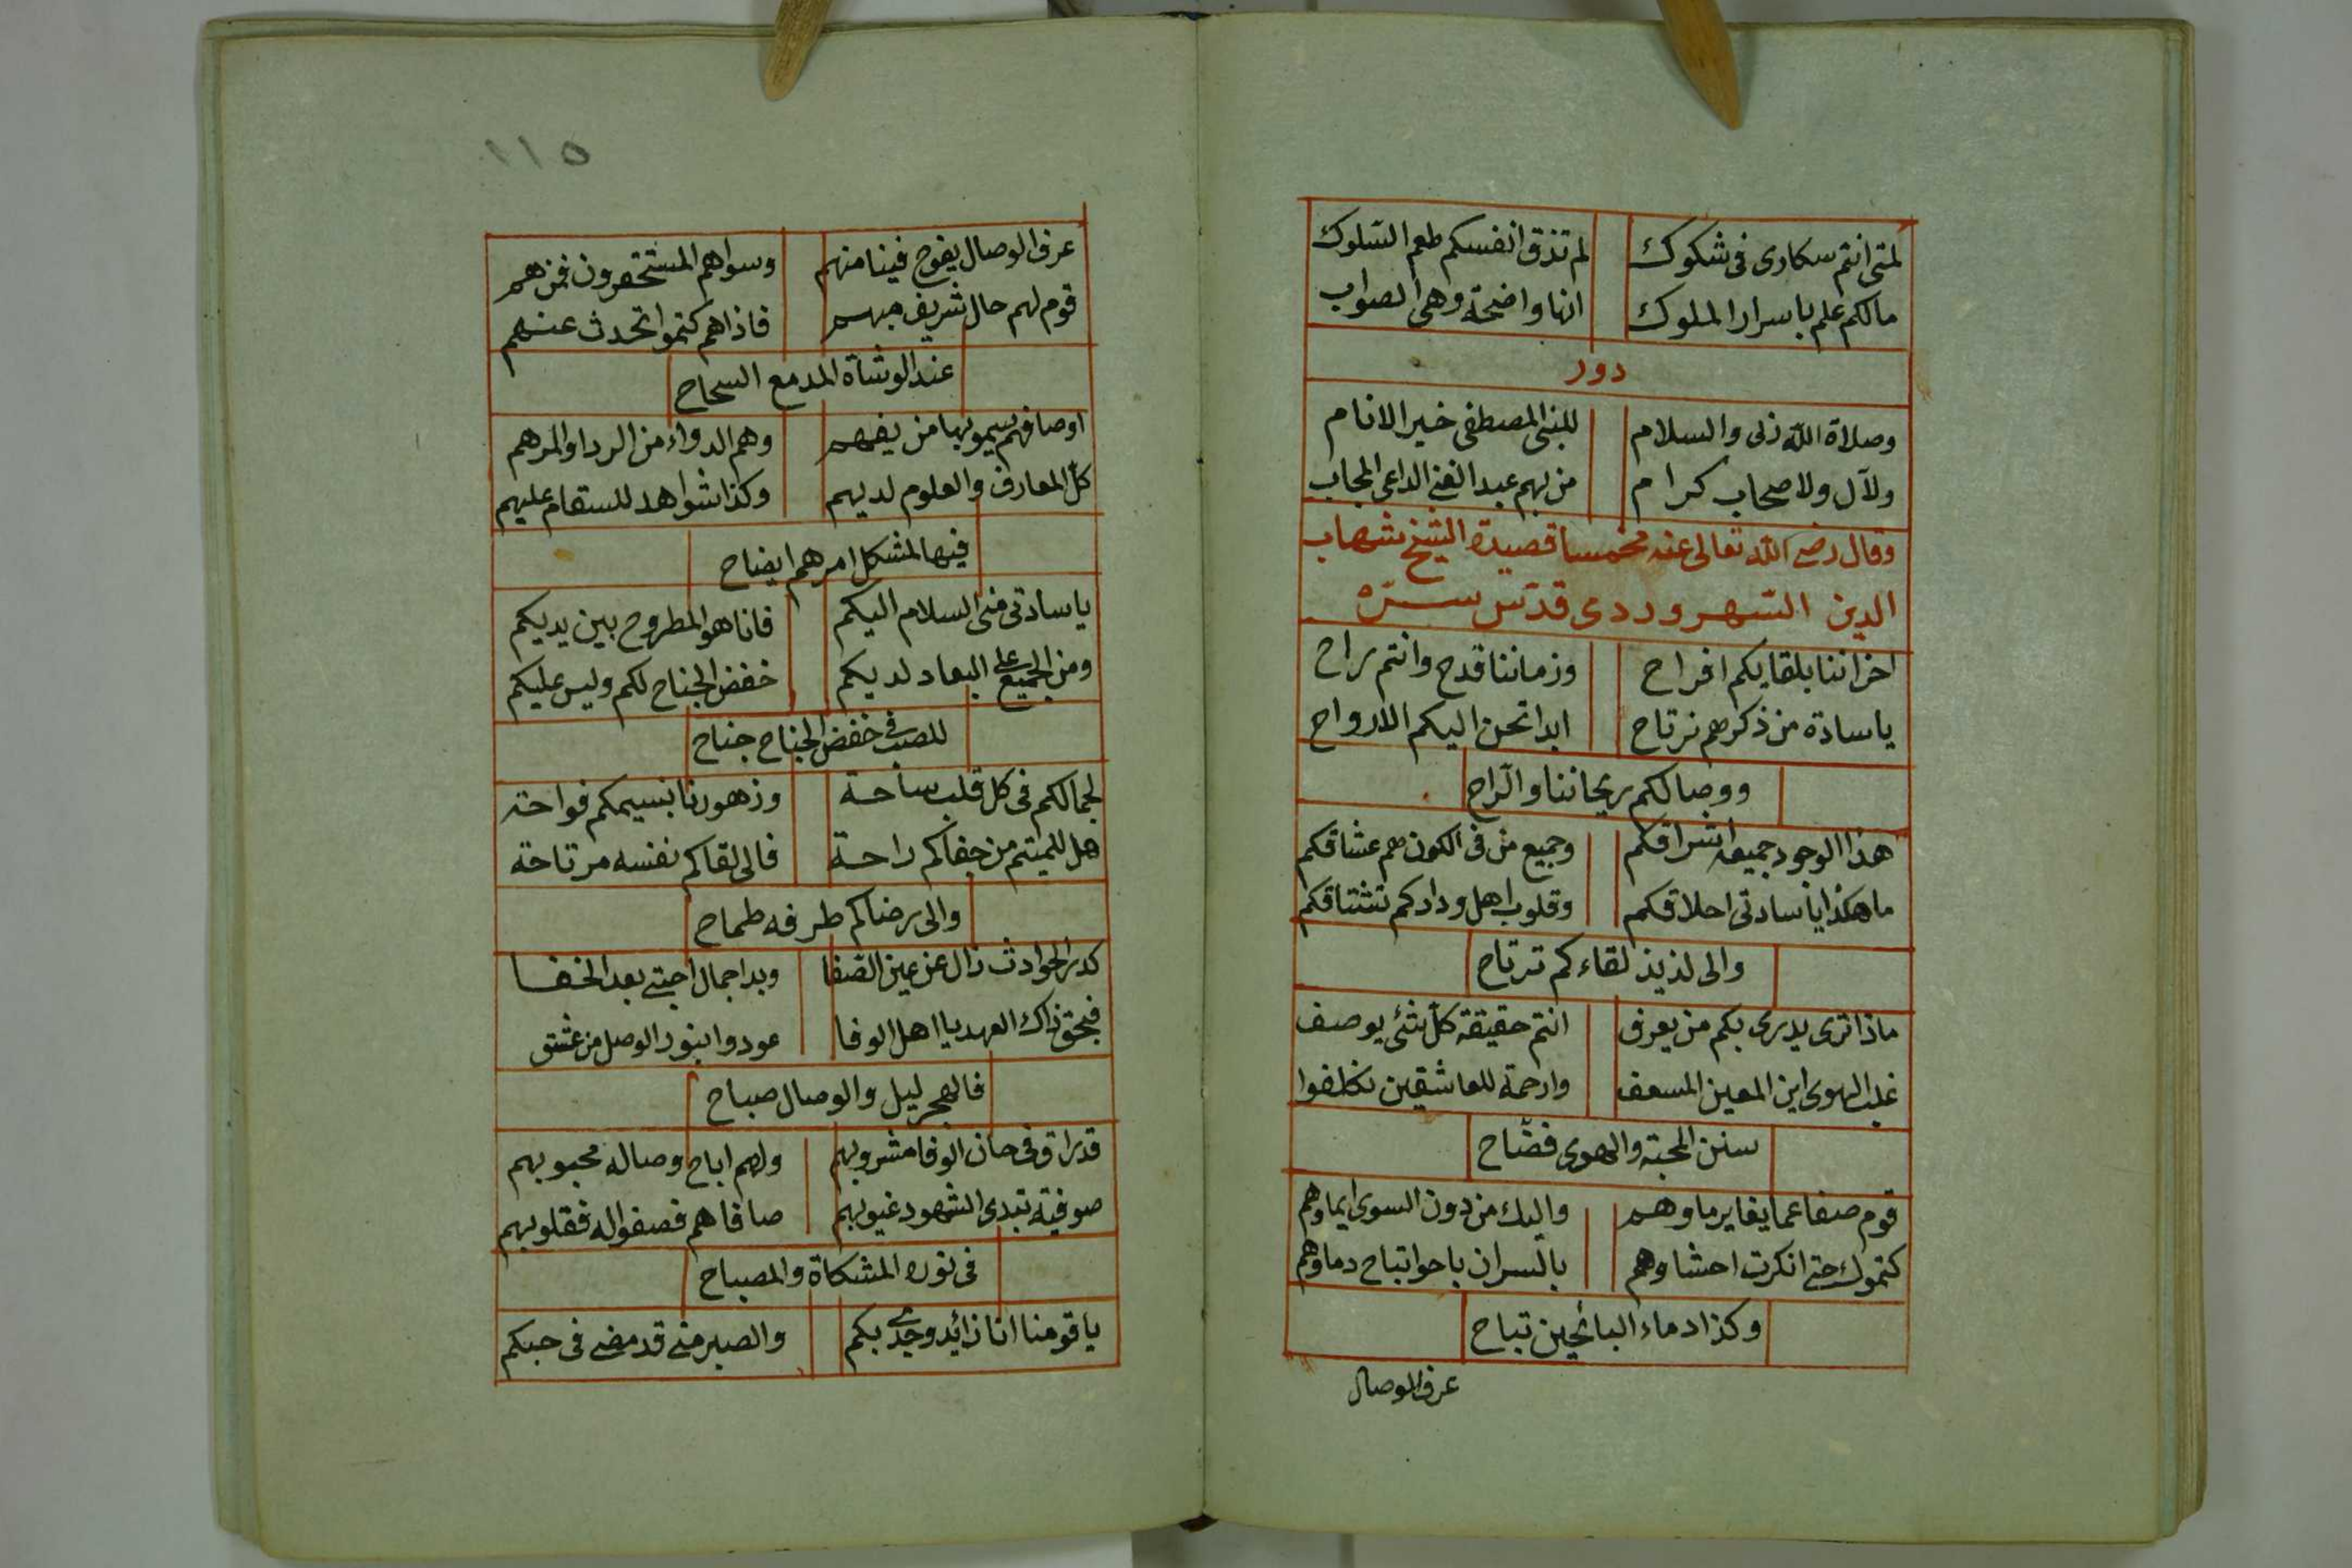 لمتى انتم سكارى فى شكوك لم تذق انفسكم طعم السّلوك
مالكم علم باسرار الملوك انها واضحة وهى الصواب
دور
وصلاة اللّه زنى والسلام للنبى المصطفى خير الانام
ولآل ولاصحاب كرام من بهم عبد الغنى الداعى المجاب
وقال رضى اللّه تعالى عنه مخمسا قصيدة الشيخ شهاب
الدين السّهروردى قدّس سرّه
احزاننا بلقايكم افراح وزماننا قدح وانتم راح
ياسادة من ذكرهم نرتاح ابدا تحن اليكم الارواح
ووصالكم ريحاننا والرّاح
هذا الوجود جميعه اشراقكم وجميع من فى الكون هم عشاقكم
ما هكذا ياسادتى اخلاقكم وقلوب اهل ودادكم تشتاقكم
والى لذيذ لقاءكم ترتاح
ماذا ترى يدرى بكم من يعرف انتم حقيقة كلّ شئ يوصف
غلب الهوى اين المعين المسعف وارحمة للعاشقين تكلفوا
سنن المحبّة والهوى فضّاح
قوم صفا عما يغاير ماوهم واليك من دون السوى ايماوهم
كتموك حتى انكرت احشاوهم بالسر ان باحوا تباح دماوهم
وكذا دماء البائحين تباح
عرف الوصال
١١٥
عرف الوصال يفوح فينا منهم وسواهم المستحقرون فمن هم
قوم لهم حال شريف مبهم فاذا هم كتموا تحدث عنهم
عند الوشاة المدمع السحاح
اوصافهم يسمو بها من يفهم وهم الدواء من الردا والمرهم
كلّ المعارف والعلوم لديهم وكذا شواهد للسقام عليهم
فيها لمشكل امرهم ايضاح
ياسادتى منى السلام اليكم فانا هو المطروح بين يديكم
ومن الجميع على البعاد لديكم خفض الجناح لكم وليس عليكم
للصب فى خفض الجناح جناح
لجمالكم فى كل قلب ساحة وزهورنا بنسيمكم فواحة
هل للميتم من جفاكم راحة فالى لقاكم نفسه مرتاحة
والى رضاكم طرفه طماح
كدر الحوادث زال عن عين الصّفا وبدا جمال احبتى بعد الخفا
فبحق ذاك العهد يا اهل الوفا عودوا بنور الوصل من غسق
فالهجر ليل والوصال صباح
قد راق فى حان الوفا مشروبهم ولهم اباح وصاله محبوبهم
صوفية تبدى الشهود غيوبهم صافاهم فصفوا له فقلوبهم
فى نوره المشكاة والمصباح
يا قومنا انا زائد وجدى بكم والصبر منى قد مضى فى حبكم